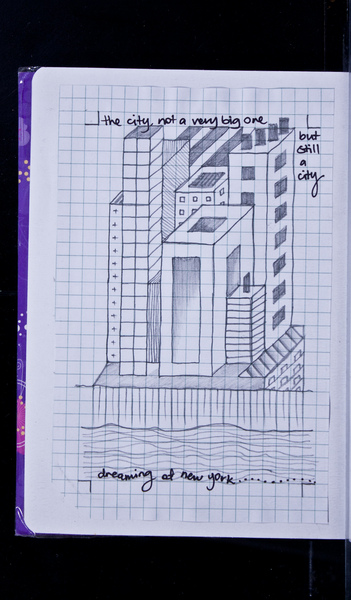 the city, not a very big one
but
still
a
city
dreaming of new york..............